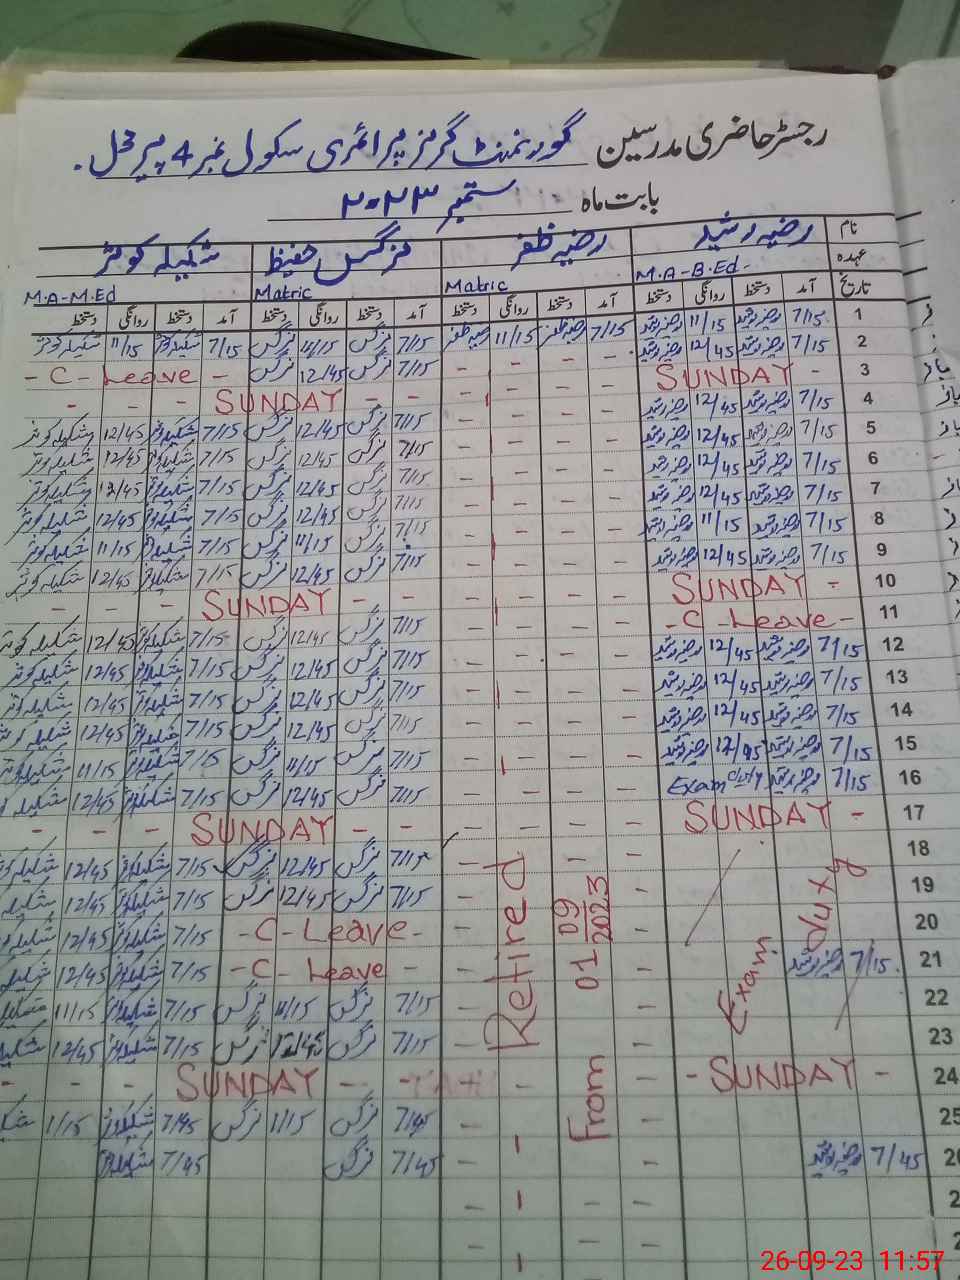 رجسٹر حاضری مدرسین گورنمنٹ گرلز پرائمری سکول نمبر 4 پیر محل.
بابت ماہ ستمبر ۲۰۲۳
نام رضیہ رشید رضیہ ظفر نرگس حفیظ شکیلہ کوثر
عہدہ M.A-B.Ed- Matric Matric M.A-M.Ed
تاریخ آمد دستخط روانگی دستخط آمد دستخط روانگی دستخط آمد دستخط روانگی دستخط آمد دستخط روانگی دستخط
1 7/15 رضیہ رشید 11/15 رضیہ رشید 7/15 رضیہ ظفر 11/15 رضیہ ظفر 7/15 نرگس 11/15 نرگس 7/15 شکیلہ کوثر 11/15 شکیلہ کوثر
2 7/15 رضیہ رشید 12/45 رضیہ رشید - - - - 7/15 نرگس 12/45 نرگس - C - Leave -
3 - SUNDAY - - - - - - SUNDAY - - -
4 7/15 رضیہ رشید 12/45 رضیہ رشید - - - - 7/15 نرگس 12/45 نرگس 7/15 شکیلہ کوثر 12/45 شکیلہ کوثر
5 7/15 رضیہ رشید 12/45 رضیہ رشید - - - - 7/15 نرگس 12/45 نرگس 7/15 شکیلہ کوثر 12/45 شکیلہ کوثر
6 7/15 رضیہ رشید 12/45 رضیہ رشید - - - - 7/15 نرگس 12/45 نرگس 7/15 شکیلہ کوثر 12/45 شکیلہ کوثر
7 7/15 رضیہ رشید 12/45 رضیہ رشید - - - - 7/15 نرگس 12/45 نرگس 7/15 شکیلہ کوثر 12/45 شکیلہ کوثر
8 7/15 رضیہ رشید 11/15 رضیہ رشید - - - - 7/15 نرگس 11/15 نرگس 7/15 شکیلہ کوثر 11/15 شکیلہ کوثر
9 7/15 رضیہ رشید 12/45 رضیہ رشید - - - - 7/15 نرگس 12/45 نرگس 7/15 شکیلہ کوثر 12/45 شکیلہ کوثر
10 - SUNDAY - - - - - - SUNDAY - -
11 - C - Leave - - - - - 7/15 نرگس 12/45 نرگس 7/15 شکیلہ کوثر 12/45 شکیلہ کوثر
12 7/15 رضیہ رشید 12/45 رضیہ رشید - - - - 7/15 نرگس 12/45 نرگس 7/15 شکیلہ کوثر 12/45 شکیلہ کوثر
13 7/15 رضیہ رشید 12/45 رضیہ رشید - - - - 7/15 نرگس 12/45 نرگس 7/15 شکیلہ کوثر 12/45 شکیلہ کوثر
14 7/15 رضیہ رشید 12/45 رضیہ رشید - - - - 7/15 نرگس 12/45 نرگس 7/15 شکیلہ کوثر 12/45 شکیلہ کوثر
15 7/15 رضیہ رشید 12/45 رضیہ رشید - - - - 7/15 نرگس 11/15 نرگس 7/15 شکیلہ کوثر 11/15 شکیلہ کوثر
16 7/15 رضیہ رشید Exam duty - - - - 7/15 نرگس 12/45 نرگس 7/15 شکیلہ کوثر 12/45 شکیلہ کوثر
17 - SUNDAY - - - - - - SUNDAY - -
18 - - 7/15 نرگس 12/45 نرگس 7/15 شکیلہ کوثر 12/45 شکیلہ کوثر
19 - - 7/15 نرگس 12/45 نرگس 7/15 شکیلہ کوثر 12/45 شکیلہ
20 - - - C - Leave - 7/15 شکیلہ کوثر 12/45 شکیلہ کوثر
21 7/15 رضیہ رشید - - - C - Leave - 7/15 شکیلہ کوثر 12/45 شکیلہ
22 - - 7/15 نرگس 11/15 نرگس 7/15 شکیلہ کوثر 11/15
23 - - 7/15 نرگس 12/45 نرگس 7/15 شکیلہ کوثر 12/45
24 - SUNDAY - - - - - SUNDAY - -
25 - - 7/45 نرگس 11/15 نرگس 7/45 شکیلہ کوثر 1/15
7/45 رضیہ رشید - - 7/45 نرگس 7/45 شکیلہ
Exam duty
Retired
From 01 09/2023
26-09-23 11:57